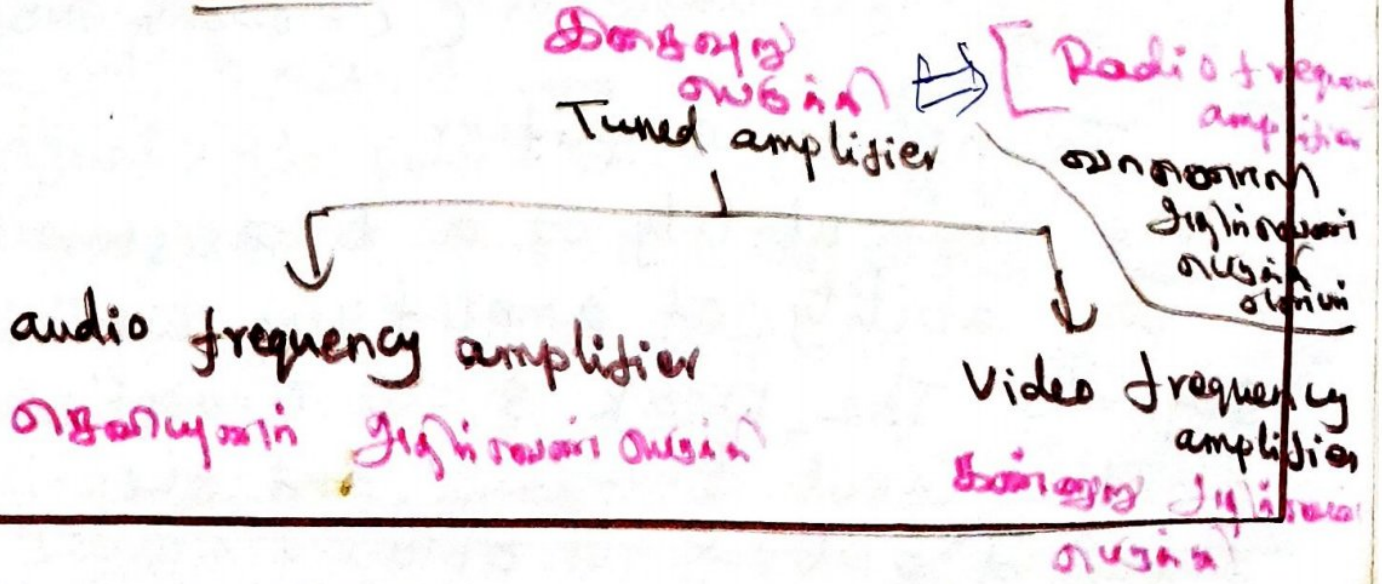 இசைவுறு
பெருக்கி
[ Radio frequency
amplifier
Tuned amplifier
வானொலி
அதிர்வெண்
பெருக்கி
audio frequency amplifier
செவியுணர் அதிர்வெண் பெருக்கி
Video frequency
amplifier
பெருக்கி